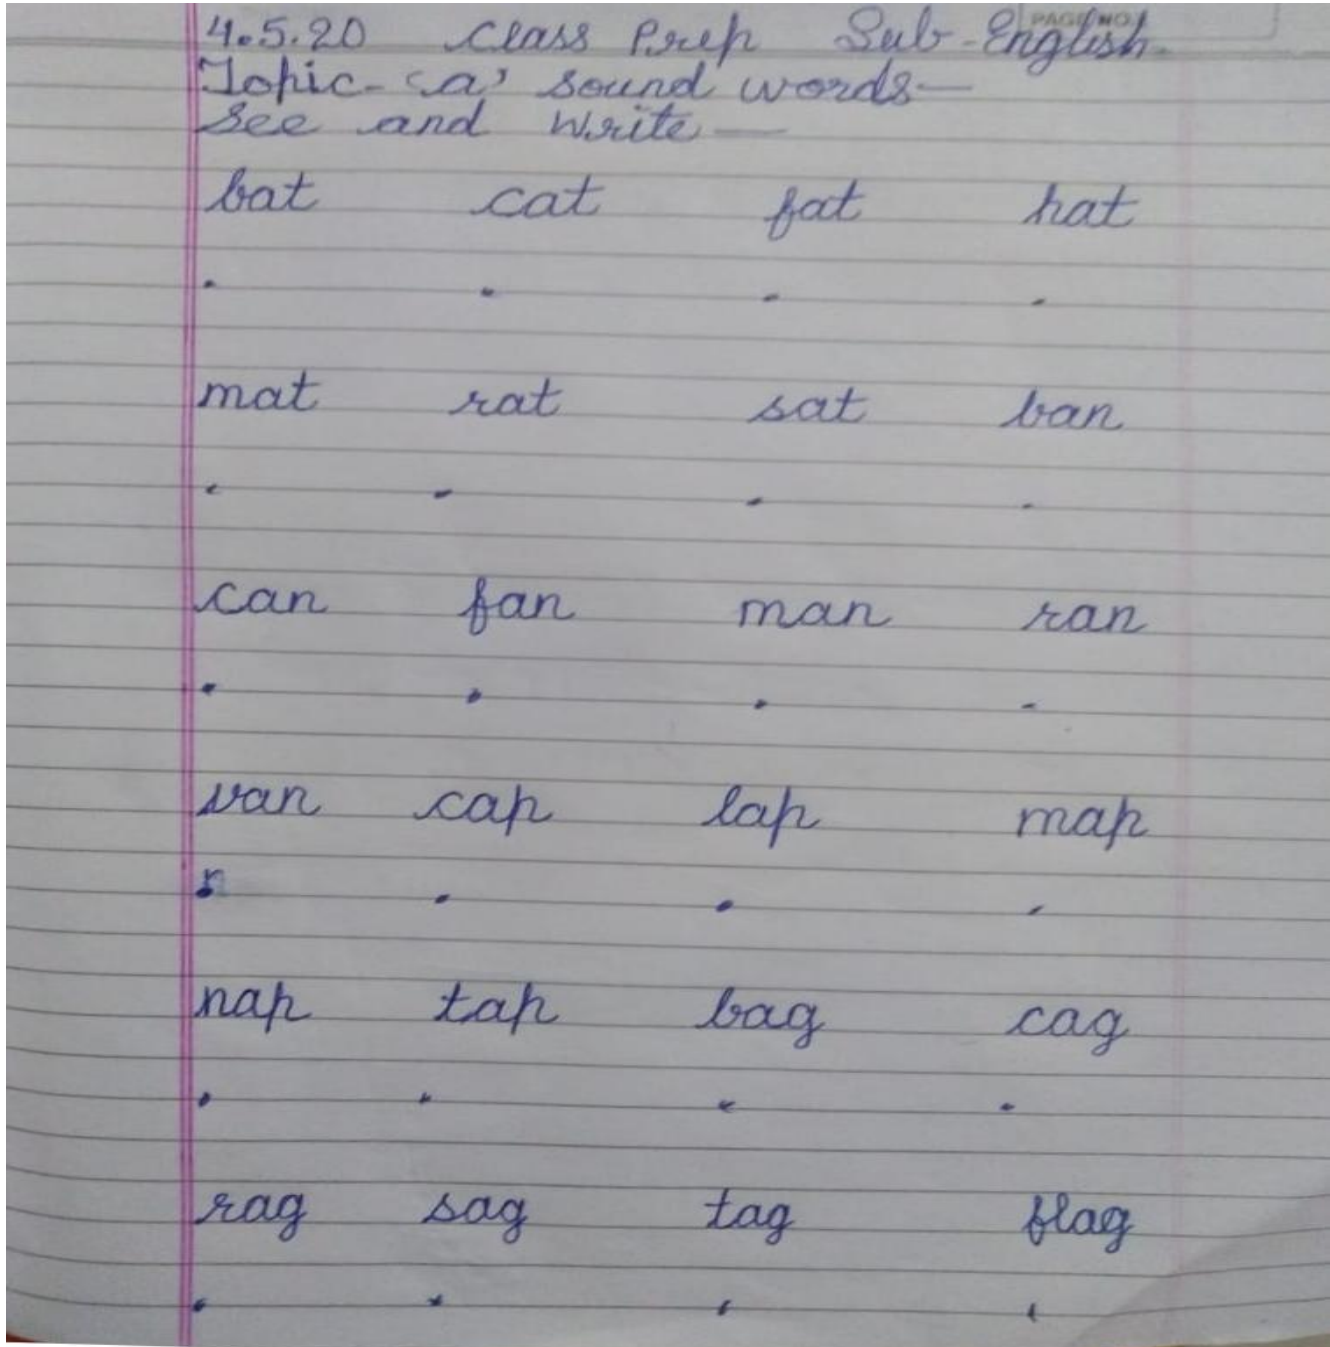 PAGE NO.
4.5.20 Class Prep Sub-English
Topic- 'a' sound words—
See and Write —
bat cat fat hat
mat rat sat ban
can fan man ran
van cap lap map
nap tap bag cag
rag sag tag flag